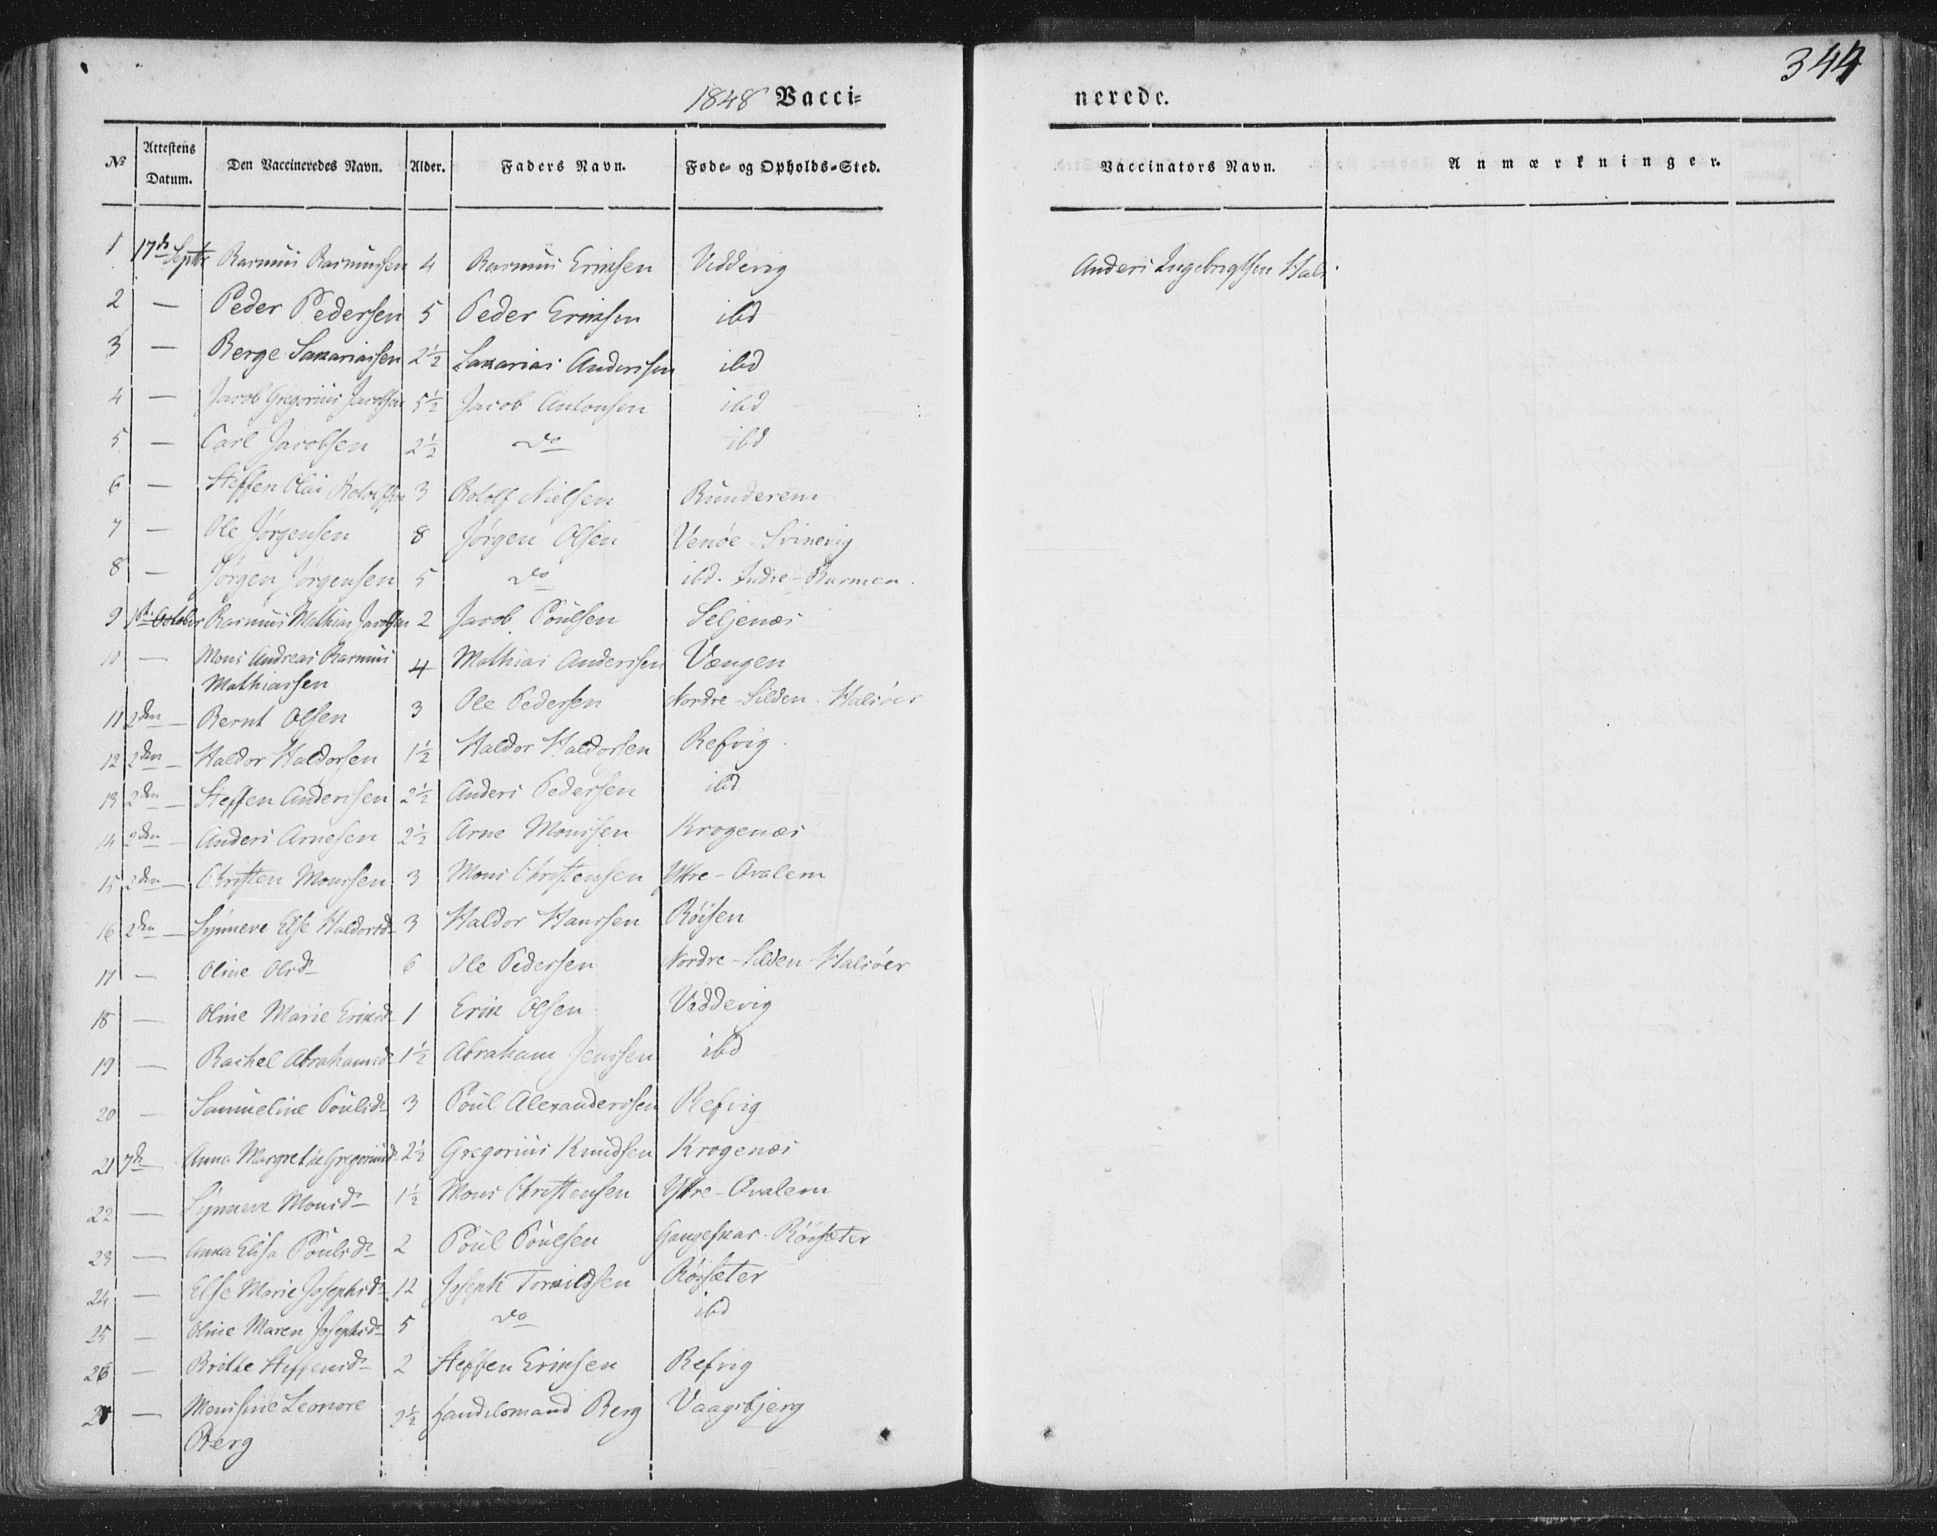 344
1848 Vacci-
nerede.
No Attestens Datum. Den Vaccineredes Navn. Alder. Faders Navn. Føde- og Opholds-Sted. Vaccinators Navn. Anmærkninger.
1 17de Septbr Rasmus Rasmussen 4 Rasmus Eriksen Veddevig Anders Ingebrigtsen Hals.
2 — Peder Pedersen 5 Peder Eriksen ibd
3 — Berge Sakariassen 2½ Sakarias Anderssen ibd
4 — Jacob Gregorius Jacobsen 5½ Jacob Antonsen ibd
5 — Carl Jacobsen 2½ do ibd
6 — Steffen Olai Rololfsen 3 Rololf Nielsen Runderem
7 — Ole Jørgensen 8 Jørgen Olsen Venøe. Svinevig
8 — Jørgen Jørgensen 5 do ibd. Indre-Barmen.
9 1ste October Rasmus Mathias Jacobsen 2 Jacob Poulsen Seljenæs
10 — Mons Andreas Rasmus 4 Mathias Anderssen Vængen
Mathiassen
11 2den — Bernt Olsen 3 Ole Pedersen Nordre-Silden. Halsøer
12 2den — Haldor Haldorsen 1½ Haldor Haldorsen Refvig.
13 2den — Steffen Anderssen 2½ Anders Pedersen ibd
14 2den — Anders Arnesen 2½ Arne Monssen Krogenæs
15 2den — Christen Monssen 3 Mons Christensen Yttre-Qvalem
16 2den — Synneve Else Haldorsd. 3 Haldor Hanssen Röisen
17 — Oline Olsd. 6 Ole Pedersen Nordre-Silden Halsøer
18 — Oline Marie Eriksd. 1 Erik Olsen Veddevig
19 — Rachel Abrahamsd. 1½ Abraham Jenssen ibd
20 — Samueline Poulsd. 3 Poul Alexanderssen Refvig
21 7de — Anna Margrethe Gregoriusd. 2½ Gregorius Knudsen Krogenæs
22 — Synneve Monsd. 1½ Mons Christensen Yttre-Qvalem
23 — Anna Elisa Poulsd. 2 Poul Poulsen Gangeskar. Röisæter
24 — Else Marie Josephsd. 12 Joseph Torkildsen Röisæter
25 — Oline Maren Josephsd. 5 do ibd
26 — Britte Steffensd. 2 Steffen Eriksen Refvig
27 — Monsine Leonore 2½ Handelsmand Berg Vaagsbjerg
Berg